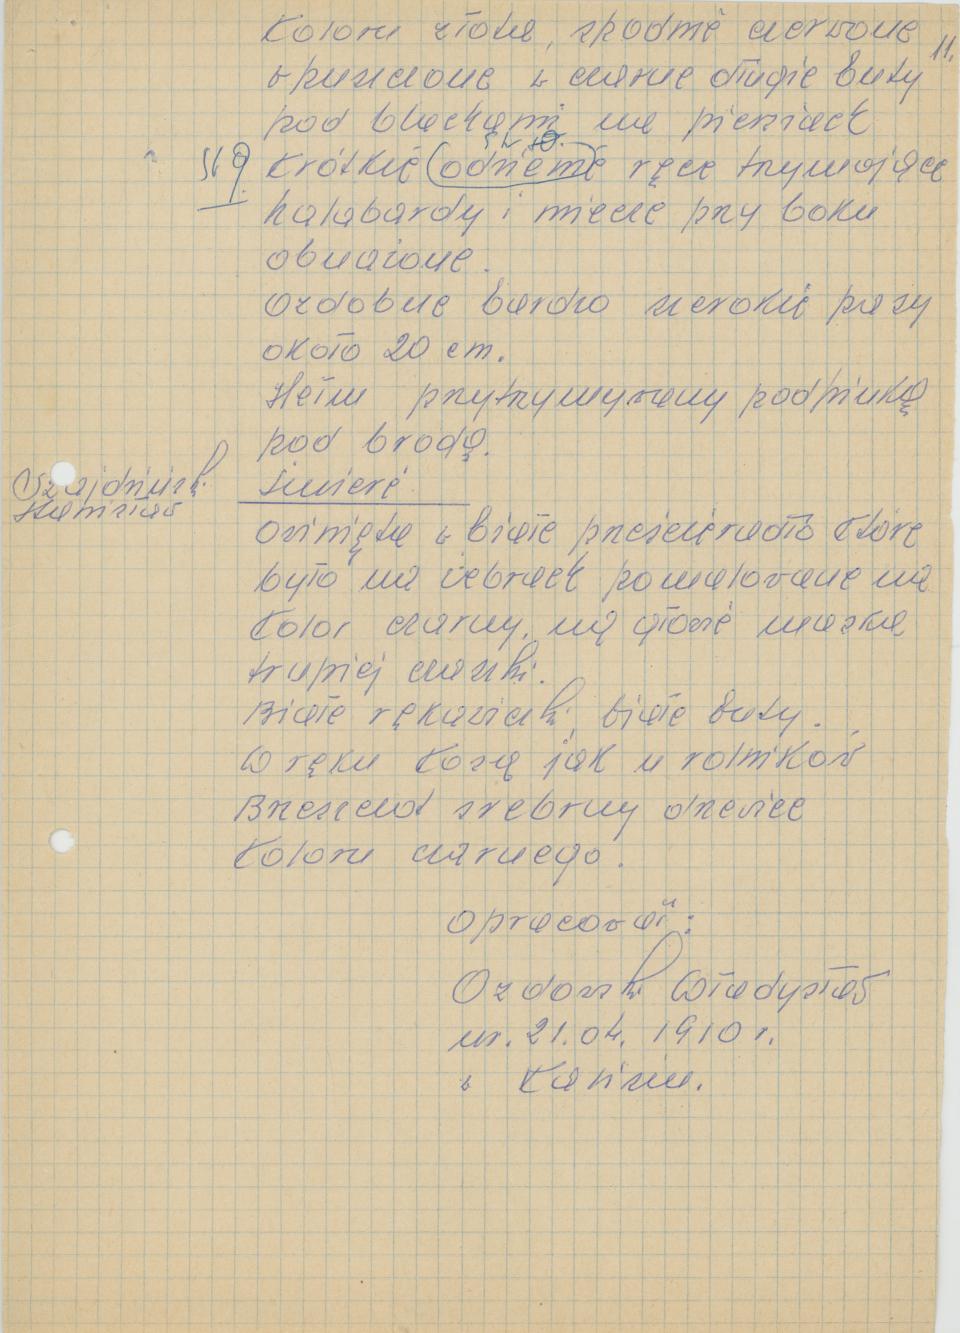 11.
koloru złota, spodnie czerwone
wpuszczone w czarne długie buty
pod blachami na piersiach
krótkie (odzienie) ręce trzymające
halabardy i miecze przy boku
obnażone.
Ozdobne bardzo szerokie pasy
około 20 cm.
Hełm przytrzymywany podpinką
pod brodą.
Szajdziński Stanisław
Śmierć
Owinięta w białe prześcieradło które
było na żebrach pomalowane na
kolor czarny, na głowie maska
trupiej czaszki.
Białe rękawiczki, białe buty.
W ręku kosa jak u rolników
Brzeszczot srebrny drzewiec
koloru czarnego.
opracował:
Ozdowski Władysław
ur. 21.04.1910 r.
w